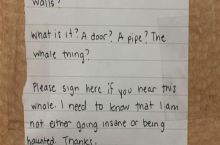 walls?
What is it? A door? A pipe? The
whole thing?
Please sign here if you hear this
whale. I need to know that I am
not either going insane or being
haunted. Thanks.